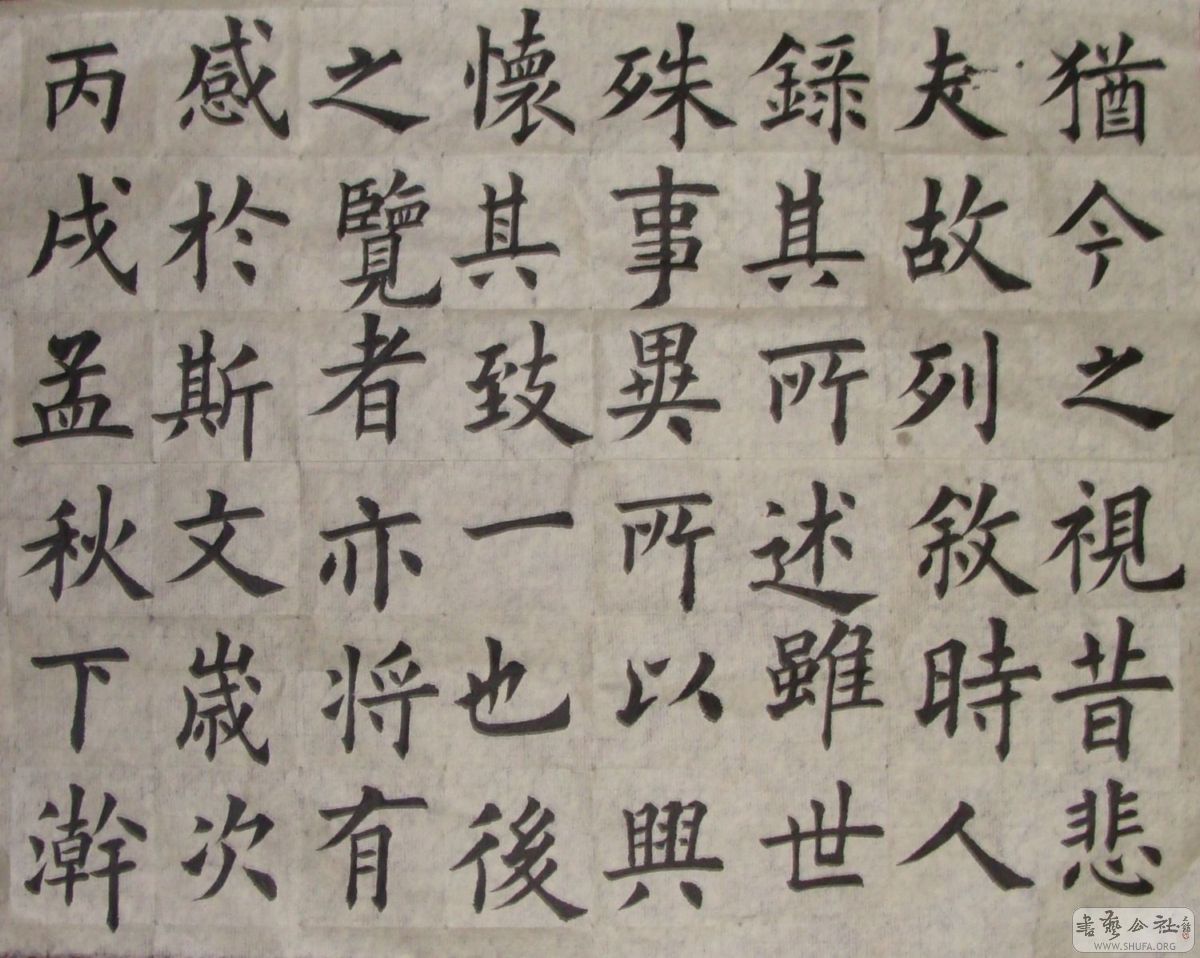 猶今之視昔悲
夫故列敘時人
錄其所述雖世
殊事異所以興
懷其致一也後
之覽者亦将有
感於斯文歲次
丙戌孟秋下澣
書藝公社
WWW.SHUFA.ORG